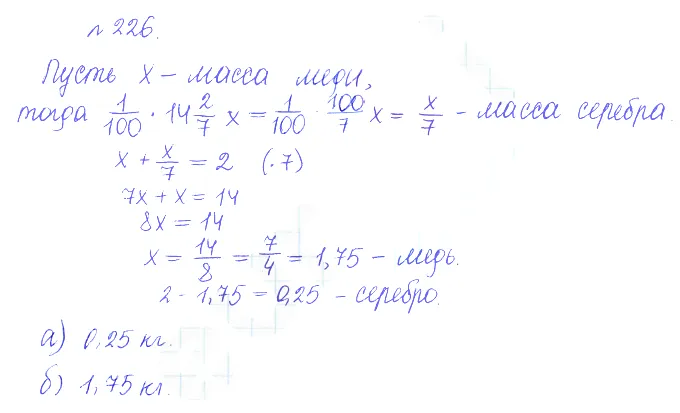 № 226.
Пусть x – масса меди,
тогда 1/100 · 14 2/7 x = 1/100 · 100/7 x = x/7 – масса серебра.
x + x/7 = 2 (·7)
7x + x = 14
8x = 14
x = 14/8 = 7/4 = 1,75 – медь.
2 - 1,75 = 0,25 – серебро.
а) 0,25 кг.
б) 1,75 кг.